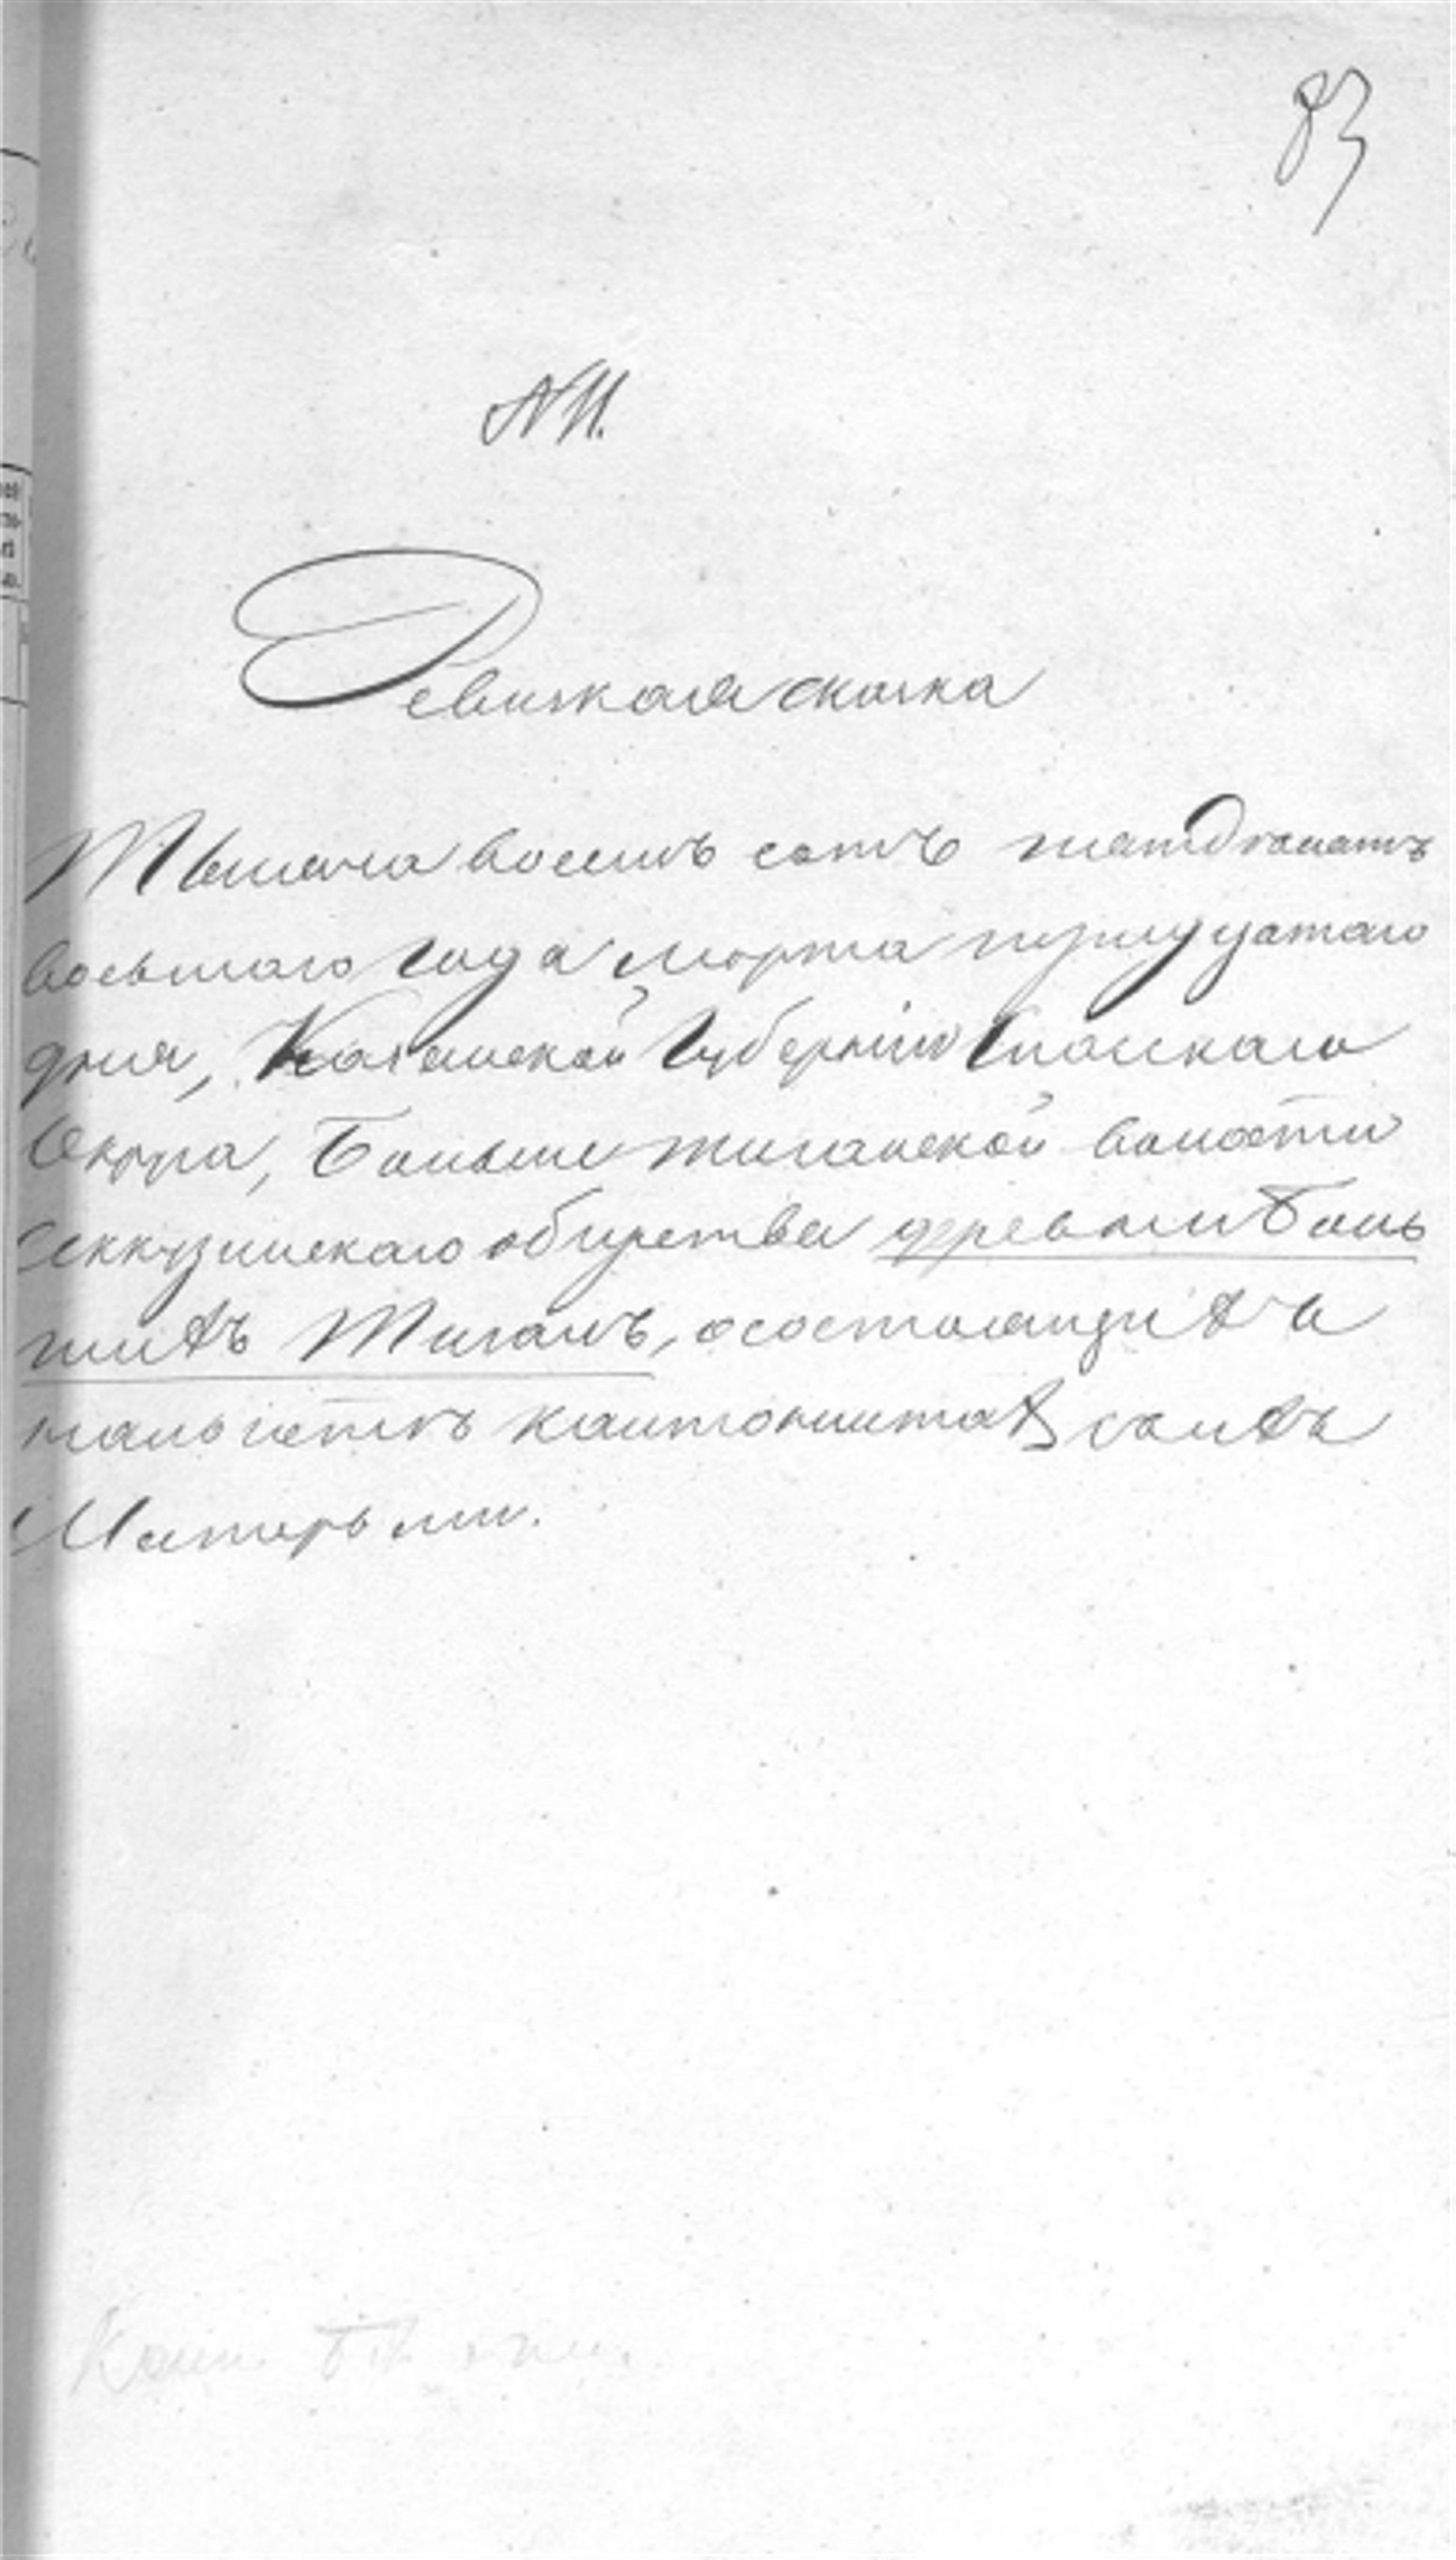 83
№ 11.
Ревизкая скаска
Тысяча восемь сотъ пятдесятъ
восьмаго года марта тридцатаго
дня, Казанской Губерніи Спаскаго
Округа, Больше тиганской волости
общества деревни Боль
шихъ Тиганъ, о состоящихъ
малолѣтн. кантонистахъ съ ихъ
Матерьми.